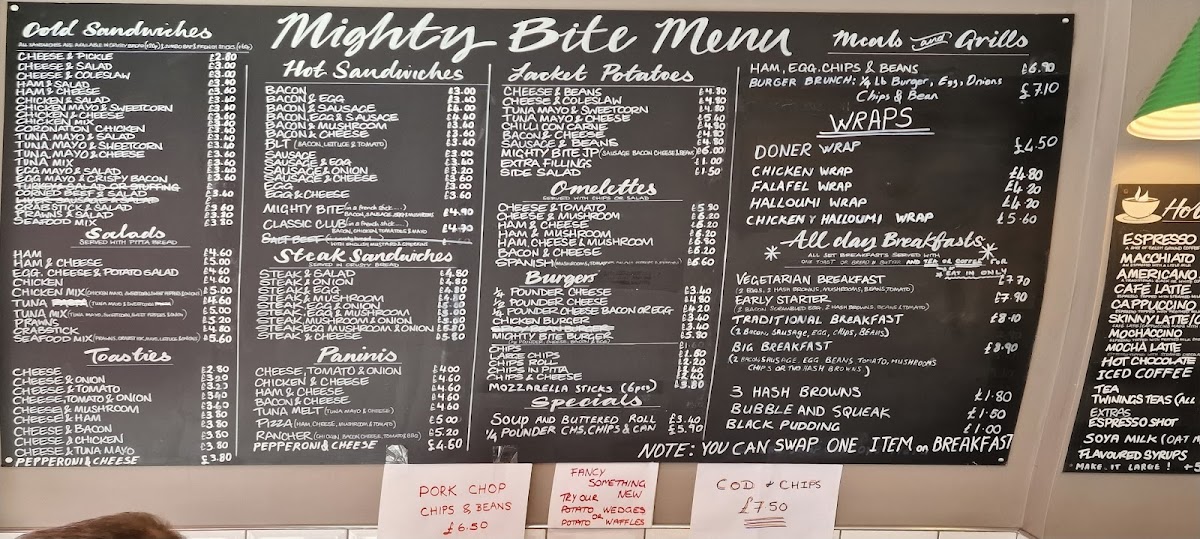 Mighty Bite Menu
Cold Sandwiches
CHEESE & PICKLE £2.80
CHEESE & SALAD £3.00
CHEESE & COLESLAW £3.00
HAM & SALAD £3.40
HAM & CHEESE £3.60
CHICKEN & SALAD £3.60
CHICKEN MAYO & SWEETCORN £3.60
CHICKEN & CHEESE £3.60
CHICKEN MIX £3.60
CORONATION CHICKEN £3.60
TUNA, MAYO & SALAD £3.40
TUNA MAYO & SWEETCORN £3.40
TUNA MAYO & CHEESE £3.60
TUNA MIX £3.60
EGG MAYO & SALAD £3.60
EGG MAYO & CRISPY BACON £3.60
TURKEY SALAD OR STUFFING £
CORNED BEEF & SALAD £3.40
CRABSTICK & SALAD £3.60
PRAWNS & SALAD £3.80
SEAFOOD MIX £3.80
Salads
SERVED WITH PITTA BREAD
HAM £4.60
HAM & CHEESE £5.00
EGG, CHEESE & POTATO SALAD £4.60
CHICKEN £4.60
CHICKEN MIX £5.00
TUNA £4.60
TUNA MIX £5.00
PRAWNS £5.20
CRABSTICK £4.80
SEAFOOD MIX £5.60
Toasties
CHEESE £2.80
CHEESE & ONION £3.20
CHEESE & TOMATO £3.20
CHEESE, TOMATO & ONION £3.40
CHEESE & MUSHROOM £3.60
CHEESE & HAM £3.80
CHEESE & BACON £3.80
CHEESE & CHICKEN £3.80
CHEESE & TUNA MAYO £3.80
PEPPERONI & CHEESE £3.80
Hot Sandwiches
BACON £3.00
BACON & EGG £3.60
BACON & SAUSAGE £4.00
BACON, EGG & SAUSAGE £4.00
BACON & MUSHROOM £3.60
BACON & CHEESE £3.60
BLT (BACON, LETTUCE & TOMATO) £3.60
SAUSAGE £3.00
SAUSAGE & EGG £3.60
SAUSAGE & ONION £3.20
SAUSAGE & CHEESE £3.60
EGG £3.00
EGG & CHEESE £3.60
MIGHTY BITE (in a french stick.....)
BACON, SAUSAGE, EGG & MUSHROOMS £4.90
CLASSIC CLUB (in a french stick.....)
BACON, CHICKEN, TOMATOES & MAYO £4.90
SALT BEEF
WITH ENGLISH MUSTARD & GHERKINS
Steak Sandwiches
SERVED IN CRUSTY BREAD
STEAK & SALAD £4.80
STEAK & ONION £4.80
STEAK & EGG £4.80
STEAK & MUSHROOM £4.80
STEAK, EGG & ONION £5.00
STEAK, EGG & MUSHROOM £5.00
STEAK & MUSHROOM & ONION £5.20
STEAK, EGG MUSHROOM & ONION £5.80
STEAK & CHEESE £5.80
Paninis
CHEESE, TOMATO & ONION £4.00
CHICKEN & CHEESE £4.60
HAM & CHEESE £4.60
BACON & CHEESE £4.60
TUNA MELT (TUNA MAYO & CHEESE) £4.60
PIZZA (HAM, CHEESE, MUSHROOM & TOMATO) £5.00
RANCHER (CHICKEN, BACON, CHEESE, TOMATO, BBQ) £5.20
PEPPERONI & CHEESE £4.60
Jacket Potatoes
CHEESE & BEANS £4.80
CHEESE & COLESLAW £4.80
TUNA MAYO & SWEETCORN £4.80
TUNA MAYO & CHEESE £5.40
CHILLI CON CARNE £4.80
BACON & CHEESE £4.80
SAUSAGE & BEANS £4.80
MIGHTY BITE JP (SAUSAGE BACON CHEESE & BEANS) £6.00
EXTRA FILLINGS £1.00
SIDE SALAD £1.50
Omelettes
SERVED WITH CHIPS OR SALAD
CHEESE & TOMATO £5.20
CHEESE & MUSHROOM £5.80
HAM & CHEESE £6.20
HAM & MUSHROOM £6.20
HAM, CHEESE & MUSHROOM £6.80
BACON & CHEESE £6.20
SPANISH £6.60
Burgers
1/4 POUNDER CHEESE £3.40
1/2 POUNDER CHEESE £4.80
1/4 POUNDER CHEESE BACON OR EGG £4.20
CHICKEN BURGER £3.40
MIGHTY BITE BURGER £5.80
CHIPS
LARGE CHIPS £1.80
CHIPS ROLL £2.20
CHIPS IN PITTA £2.20
CHIPS & CHEESE £2.60
MOZZARELLA STICKS (6pcs) £3.80
Specials
SOUP AND BUTTERED ROLL £3.40
1/4 POUNDER CHS, CHIPS & CAN £5.70
Meals and Grills
HAM, EGG, CHIPS & BEANS £6.90
BURGER BRUNCH: 1/4 Lb Burger, Egg, Onions
Chips & Bean £7.10
WRAPS
DONER WRAP £4.50
CHICKEN WRAP £4.80
FALAFEL WRAP £4.20
HALLOUMI WRAP £4.20
CHICKEN Y HALLOUMI WRAP £5.60
All day Breakfasts
ALL SET BREAKFASTS SERVED WITH
ONE TOAST OR BREAD & BUTTER AND TEA OR COFFEE FOR
EAT IN ONLY
VEGETARIAN BREAKFAST £7.70
(2 EGGS, 2 HASH BROWNS, MUSHROOMS, BEANS, TOMATO)
EARLY STARTER £7.90
(2 BACON, SCRAMBLED EGG, 2 HASH BROWNS, BEANS & TOMATO)
TRADITIONAL BREAKFAST £8.10
(2 BACON, SAUSAGE, EGG, CHIPS, BEANS)
BIG BREAKFAST £8.90
(2 BACON SAUSAGE, EGG BEANS TOMATO, MUSHROOMS
CHIPS OR TWO HASH BROWNS)
3 HASH BROWNS £1.80
BUBBLE AND SQUEAK £1.60
BLACK PUDDING £1.00
NOTE: YOU CAN SWAP ONE ITEM ON BREAKFAST
PORK CHOP
CHIPS & BEANS
£6.50
FANCY
SOMETHING
TRY OUR NEW
POTATO WEDGES
OR
POTATO WAFFLES
COD + CHIPS
£7.50
Hot
ESPRESSO
MACCHIATO
AMERICANO
CAFÉ LATTE
CAPPUCCINO
SKINNY LATTE/C
MOCHACCINO
MOCHA LATTE
HOT CHOCOLATE
ICED COFFEE
TEA
TWININGS TEAS (ALL
EXTRAS
ESPRESSO SHOT
SOYA MILK (OAT M
FLAVOURED SYRUPS
MAKE IT LARGE! +5